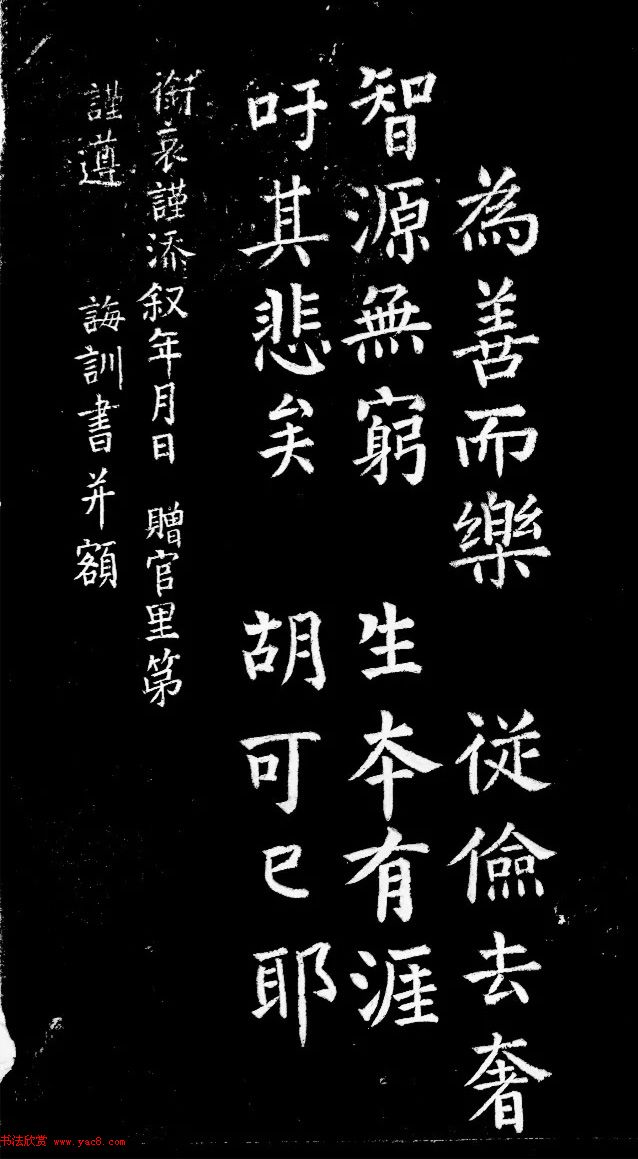 為善而樂 從儉去奢
智源無窮 生本有涯
吁其悲矣 胡可已耶
銜哀謹添叙年月日 贈官里第
謹遵 誨訓書并額
书法欣赏 www.yac8.com